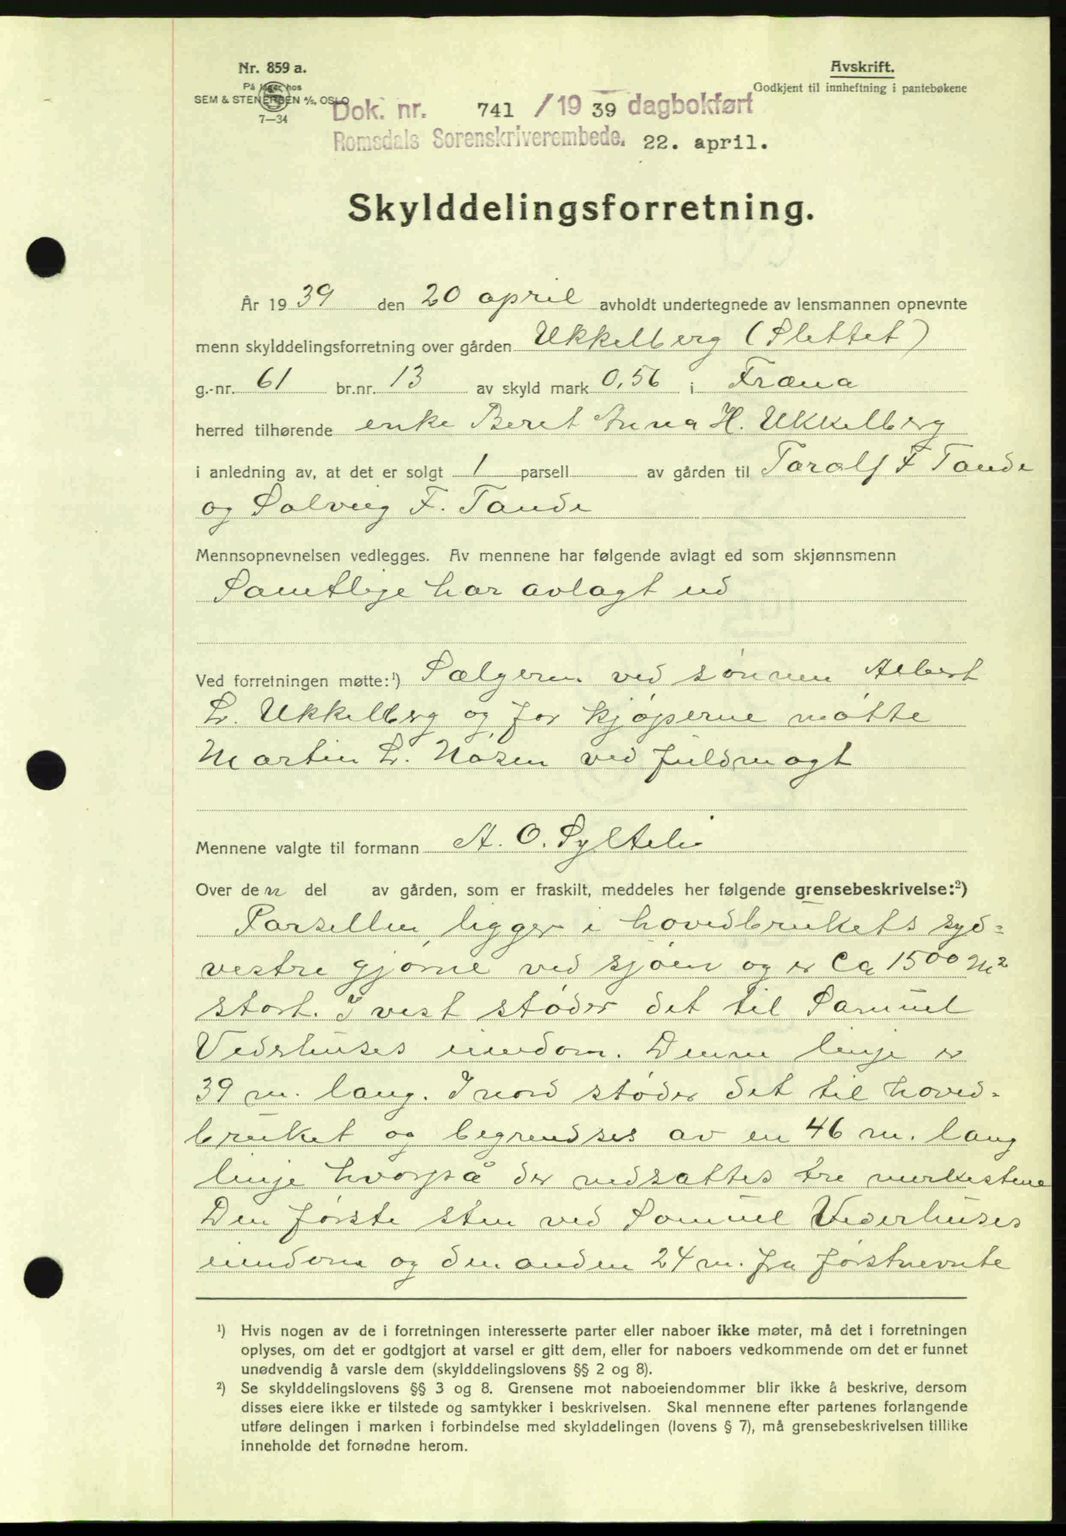 Nr. 859 a.
På lager hos
SEM & STENERSEN A/S, OSLO
7—34
Avskrift.
Godkjent til innheftning i pantebøkene
Dok. nr. 741 / 19 39 dagbokført
Romsdals Sorenskriverembede. 22. april.
Skylddelingsforretning.
År 19 39 den 20 april avholdt undertegnede av lensmannen opnevnte
menn skylddelingsforretning over gården Ukkelberg (Slettet)
g.-nr. 61 br.nr. 13 av skyld mark 0,56 i Fræna
herred tilhørende enke Beret Anna H. Ukkelberg
i anledning av, at det er solgt 1 parsell av gården til Taralf F Tande
og Solveig F. Tande
Mennsopnevnelsen vedlegges. Av mennene har følgende avlagt ed som skjønnsmenn
Samtlige har avlagt ed
Ved forretningen møtte:¹) Sælgeren ved sønnen Albert
L. Ukkelberg og for kjøperne møtte
Martin L. Nåsen ved fuldmagt
Mennene valgte til formann A. O. Sylteli
Over den del av gården, som er fraskilt, meddeles her følgende grensebeskrivelse:²)
Parsellen ligger i hovedbrukets syd-
vestre gjørne ved sjøen og er ca 1500 m²
stort. I vest støder det til Samuel
Vederhuses eiendom. Denne linje er
39 m. lang. I nord støder det til hoved-
bruket og begrendses av en 46 m. lang
linje hvorpå der nedsattes tre merkestene
Den første sten ved Samuel Vederhuses
eiendom og den anden 24 m. fra førstnevnte
¹) Hvis nogen av de i forretningen interesserte parter eller naboer ikke møter, må det i forretningen
oplyses, om det er godtgjort at varsel er gitt dem, eller for naboers vedkommende om det er funnet
unødvendig å varsle dem (skylddelingslovens §§ 2 og 8).
²) Se skylddelingslovens §§ 3 og 8. Grensene mot naboeiendommer blir ikke å beskrive, dersom
disses eiere ikke er tilstede og samtykker i beskrivelsen. Skal mennene efter partenes forlangende
utføre delingen i marken i forbindelse med skylddelingen (lovens § 7), må grensebeskrivelsen tillike
inneholde det fornødne herom.